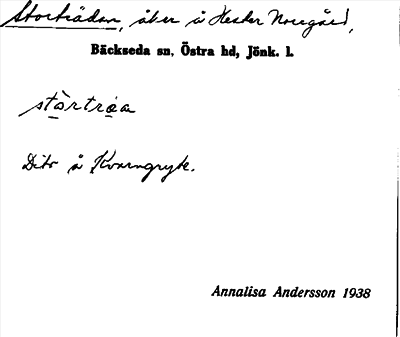 Storträdan, åker å Hester Norrgård,
Bäckseda sn, Östra hd, Jönk. l.
stòrtráa
Dito å Kvarngryte.
Annalisa Andersson 1938